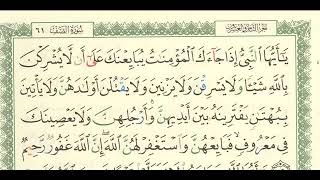 الجزء الثامن والعشرون سورة الصف ٦١
يَٰٓأَيُّهَا ٱلنَّبِىُّ إِذَا جَآءَكَ ٱلْمُؤْمِنَٰتُ يُبَايِعْنَكَ عَلَىٰٓ أَن لَّا يُشْرِكْنَ
بِٱللَّهِ شَيْـًٔا وَلَا يَسْرِقْنَ وَلَا يَزْنِينَ وَلَا يَقْتُلْنَ أَوْلَٰدَهُنَّ وَلَا يَأْتِينَ
بِبُهْتَٰنٍ يَفْتَرِينَهُۥ بَيْنَ أَيْدِيهِنَّ وَأَرْجُلِهِنَّ وَلَا يَعْصِينَكَ
فِى مَعْرُوفٍ فَبَايِعْهُنَّ وَٱسْتَغْفِرْ لَهُنَّ ٱللَّهَ إِنَّ ٱللَّهَ غَفُورٌ رَّحِيمٌ